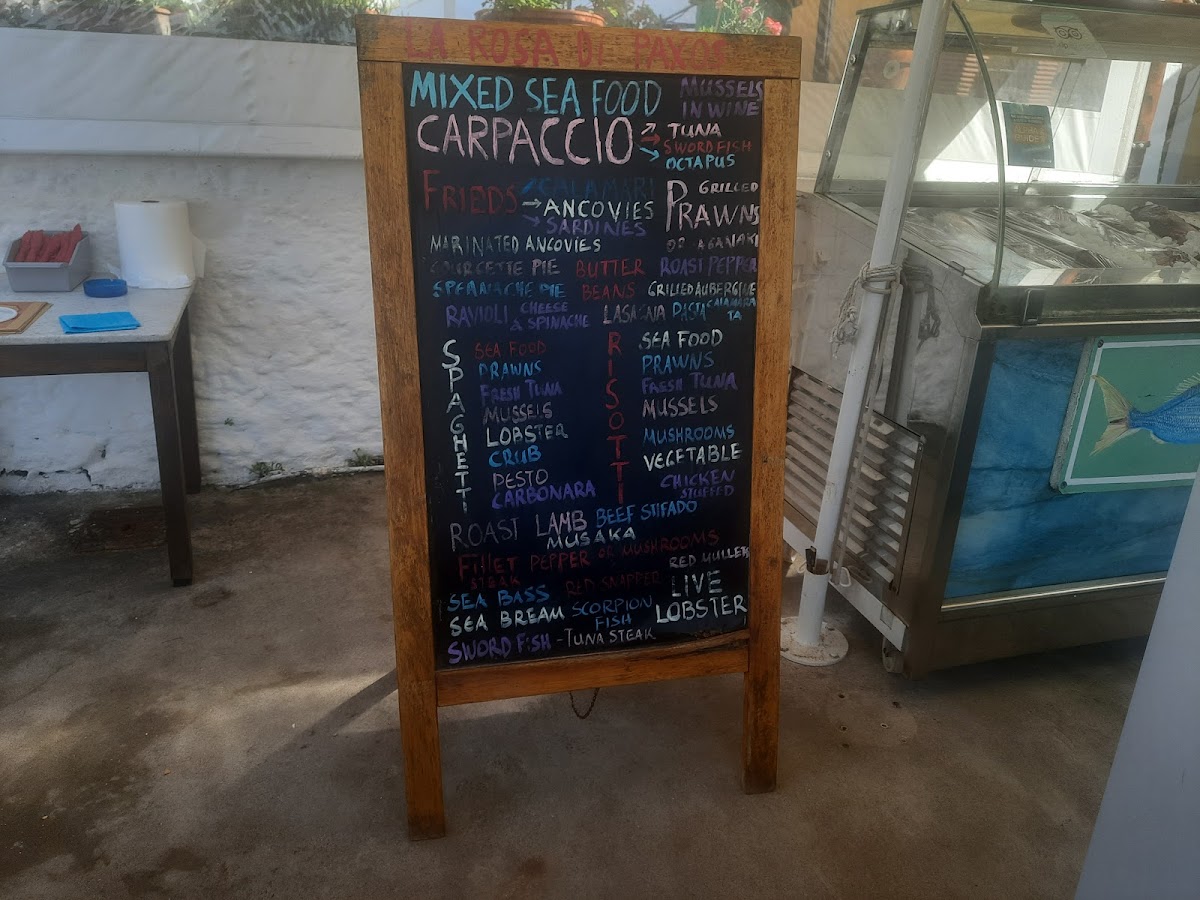 LA ROSA Di PAXOS
MIXED SEA FOOD
MUSSELS
IN WINE
CARPACCIO → TUNA
SWORD FISH
OCTAPUS
FRIEDS → CALAMARI
→ ANCOVIES
→ SARDINES
GRILLED
PRAWNS
OR AGANAKI
MARINATED ANCOVIES
COURGETTE PIE BUTTER ROAST PEPPER
BEANS GRILLED AUBERGINE
RAVIOLI CHEESE
& SPINACHE
LASAGNA PASTA CALAMARA
TA
SPAGHETTI
SEA FOOD
PRAWNS
FRESH TUNA
MUSSELS
LOBSTER
CRUB
PESTO
CARBONARA
RISOTTI
SEA FOOD
PRAWNS
FRESH TUNA
MUSSELS
MUSHROOMS
VEGETABLE
CHICKEN
STUFFED
ROAST LAMB BEEF STIFADO
MUSAKA
FILLET PEPPER OR MUSHROOMS
STEAK
RED MULLETS
SEA BASS RED SNAPPER LIVE
SEA BREAM SCORPION LOBSTER
FISH
SWORD FISH - TUNA STEAK